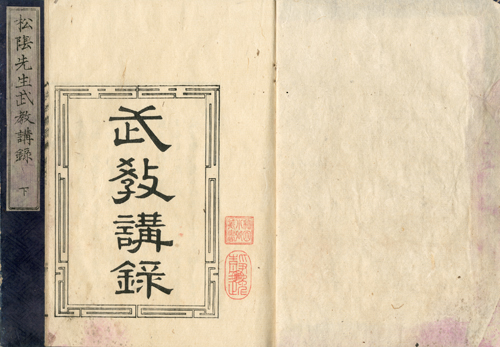 松陰先生武教講録 下
武教講録